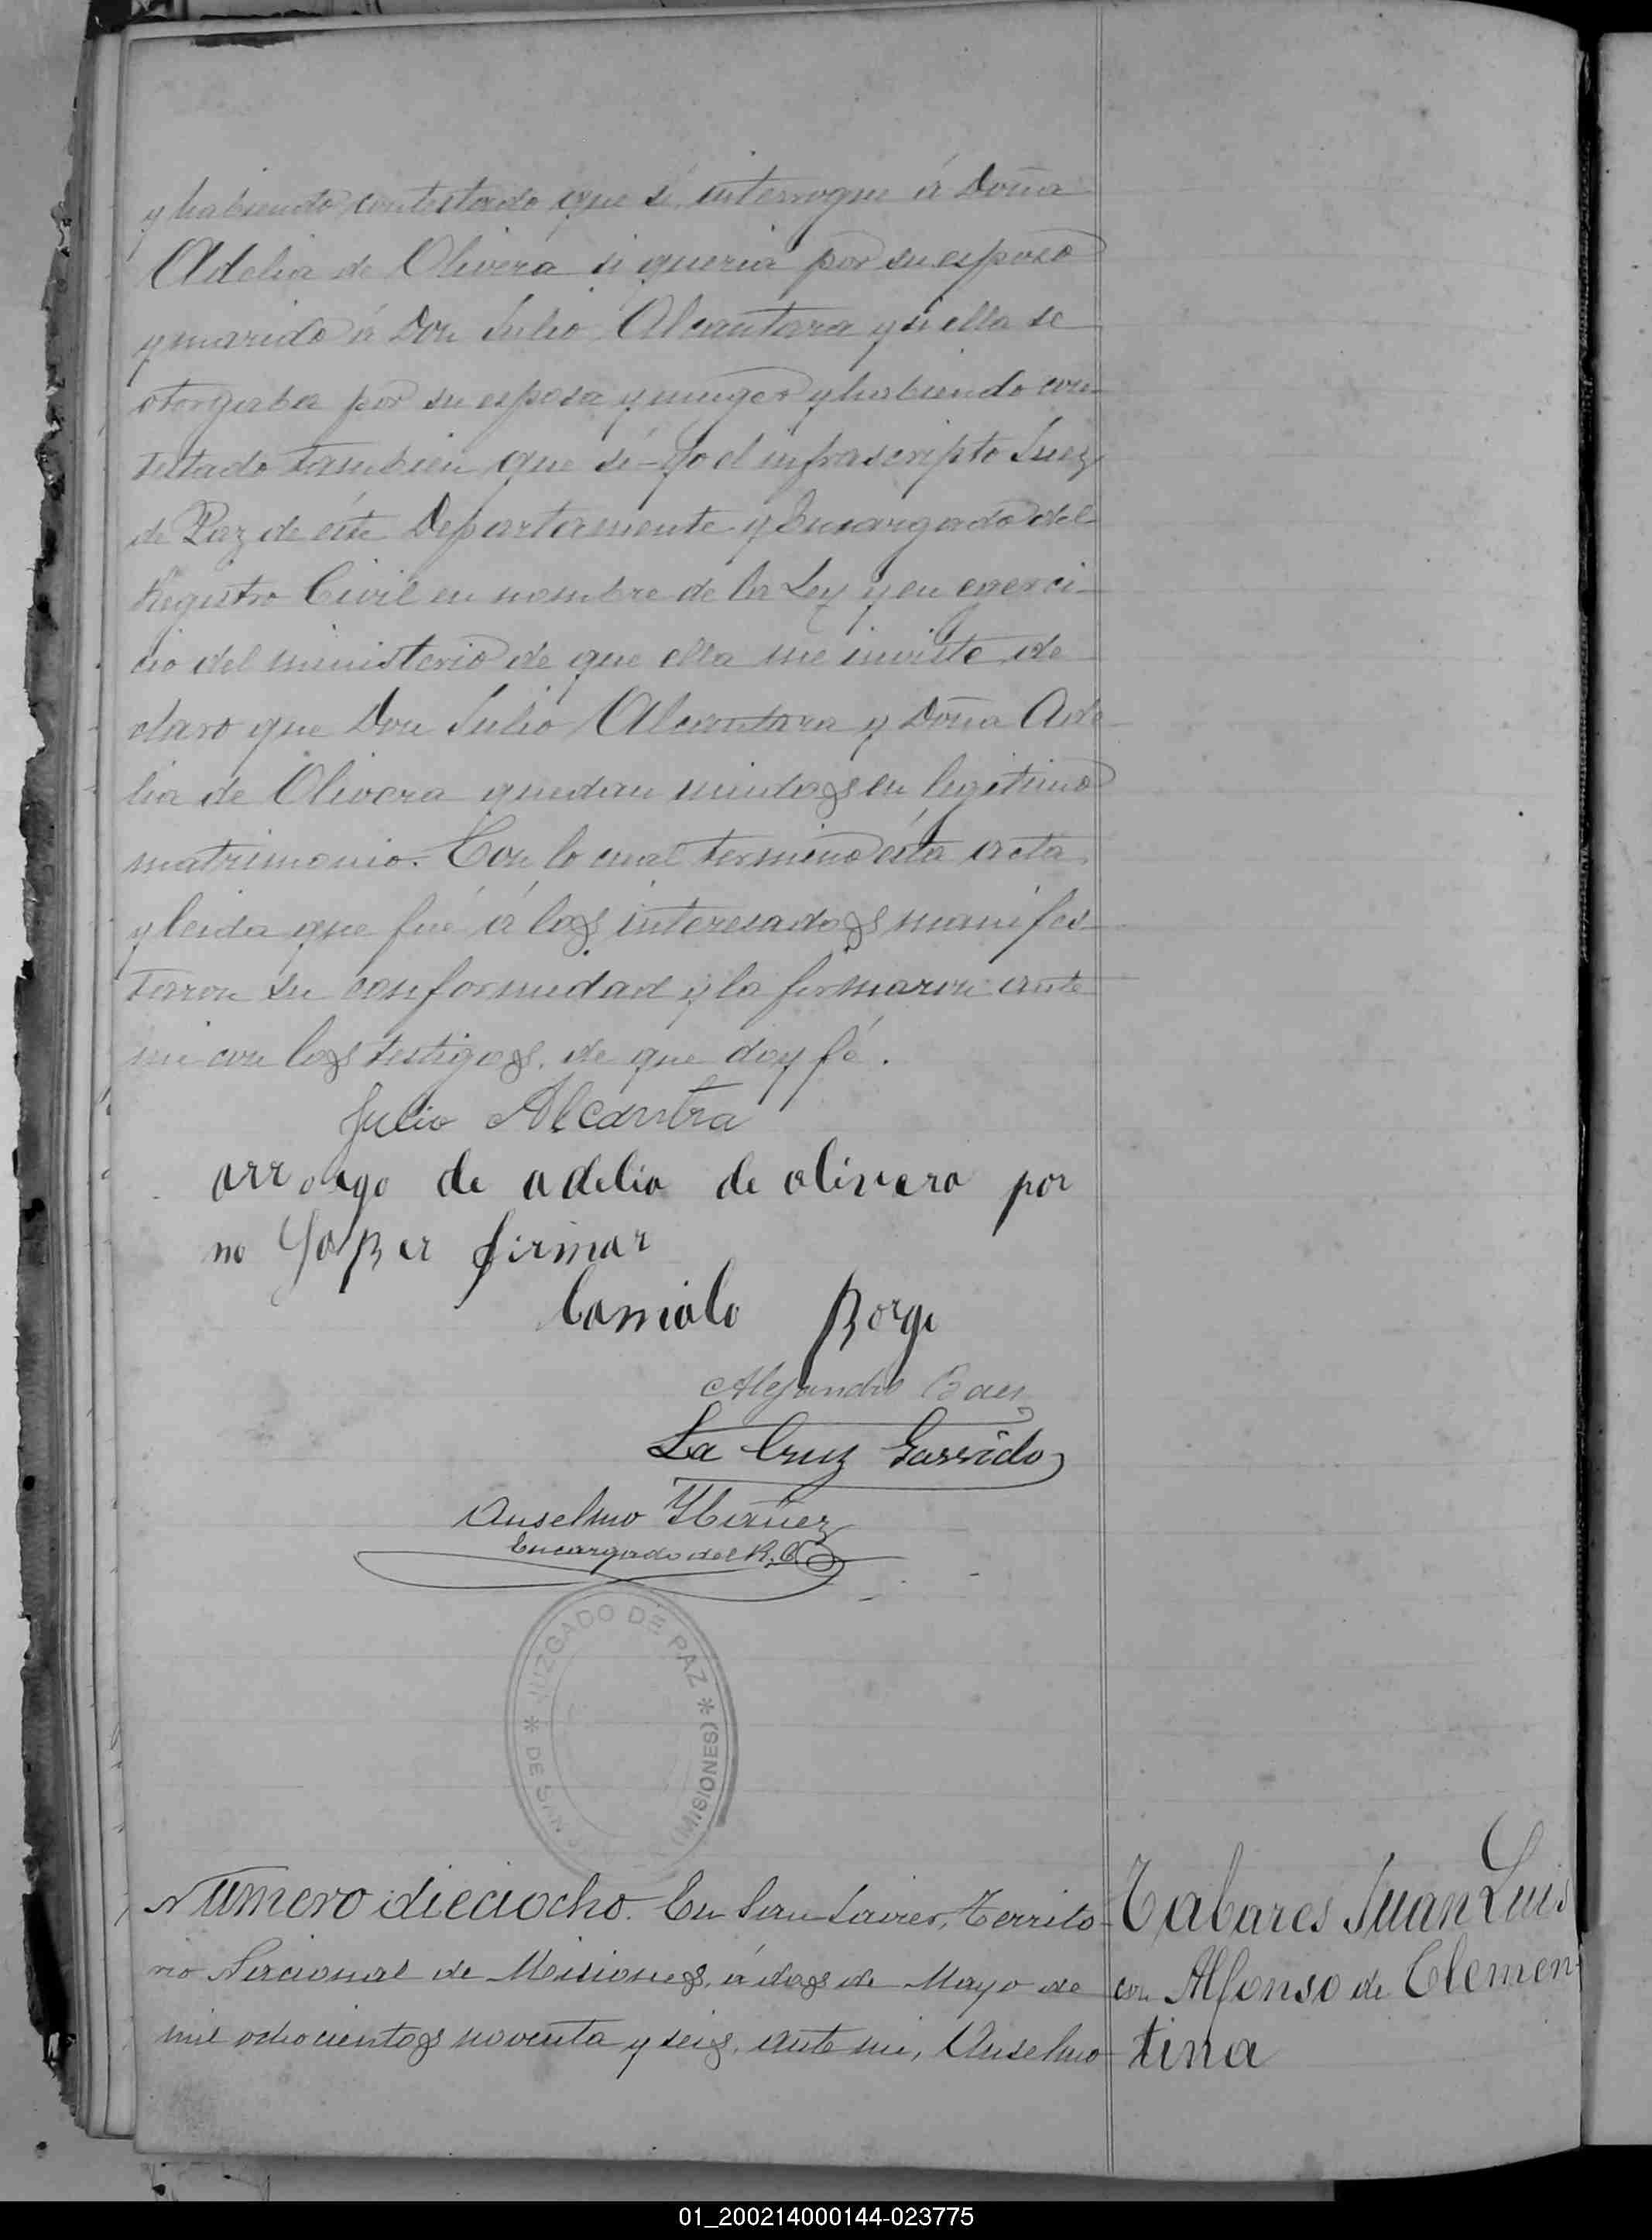 y habiendo contestado que si interrogue á Doña
Adelia de Olivera si queria por su esposo
y marido á Don Julio Alcantara y si ella se
otorgaba por su esposa y muger y habiendo con-
testado tambien que si - Yo el infrascripto Juez
de Paz de este Departamento y Encargado del
Registro Civil en nombre de la Ley y en egerci-
cio del ministerio de que ella me inviste de
claro que Don Julio Alcantara y Doña Ade
lia de Olivera quedan unidos en legitimo
matrimonio. Con lo cual terminó ésta acta
y leida que fué á los interesados manifes-
taron su conformidad y la firmaron ante
mi con los testigos, de que doy fé.
Julio Alcantra
arroego de adelia de olivera por
no saber firmar
Camialo Borge
Alejandro Baes
La Cruz Garrido
Anselmo Ybañez
Encargado del R. C.
JUZGADO DE PAZ * (MISIONES) * DE SAN
Número dieciocho. En San Javier, Territo-
rio Nacional de Misiones, á dos de Mayo de
mil ochocientos noventa y seis, ante mi, Anselmo
Tabares Juan Luis
con Alfonso de Clemen-
tina
01_200214000144-023775